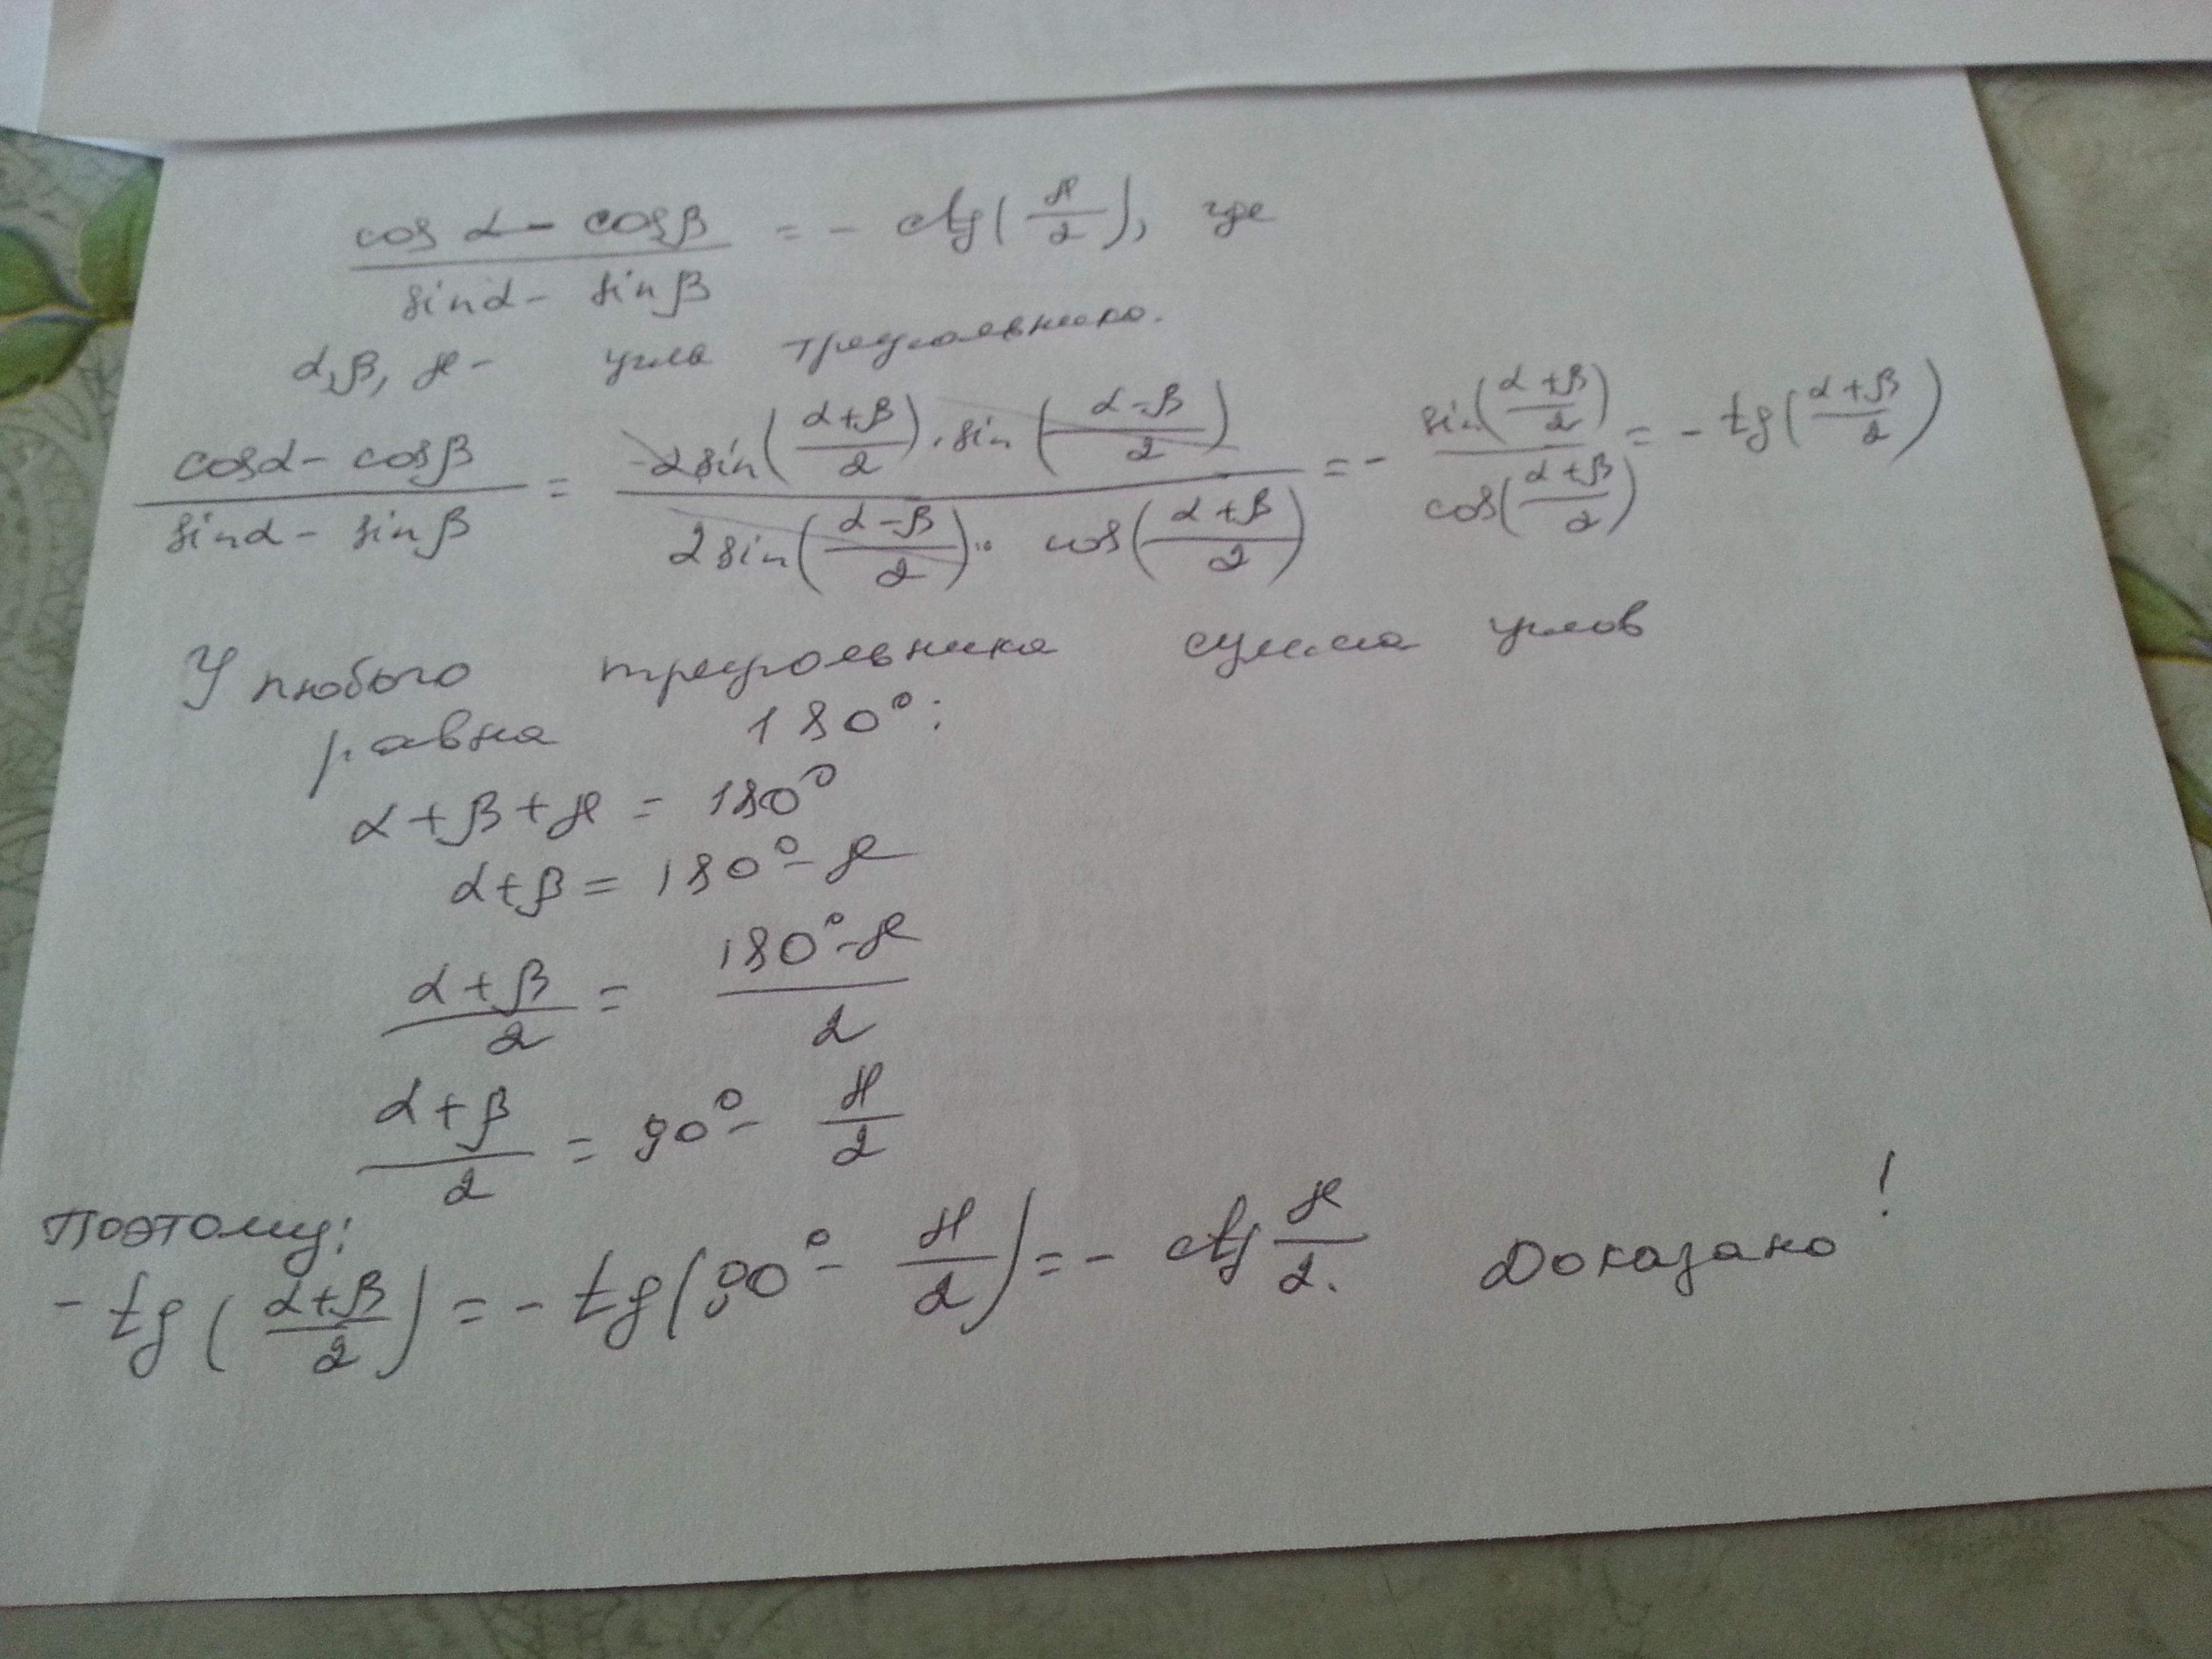 cos α - cos β / sin α - sin β = - ctg(γ/2), где
α, β, γ - углы треугольника.
cos α - cos β / sin α - sin β = -2 sin(α+β/2) · sin(α-β/2) / 2 sin(α-β/2) · cos(α+β/2) = - sin(α+β/2) / cos(α+β/2) = - tg(α+β/2)
У любого треугольника сумма углов
равна 180°:
α+β+γ = 180°
α+β = 180°-γ
α+β/2 = 180°-γ/2
α+β/2 = 90° - γ/2
Поэтому:
- tg(α+β/2) = - tg(90° - γ/2) = - ctg γ/2. Доказано!